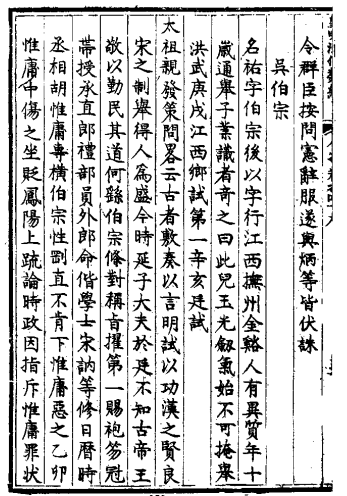 令群臣按問憲辭服遂與炳等皆伏誅
吳伯宗
名祐字伯宗後以字行江西撫州金谿人有異質年十
歲通舉子業識者奇之曰此兒玉光劔氣始不可掩舉
洪武庚戌江西鄉試第一辛亥廷試
太祖親發策問畧云古者敷奏以言明試以功漢之賢良
宋之制舉得人為盛今時延子大夫於廷不知古帝王
敬以勤民其道何繇伯宗條對稱旨擢第一賜袍笏冠
帶授承直郎禮部員外郎命偕學士宋訥等修日曆時
丞相胡惟庸專橫伯宗性剛直不肯下惟庸惡之乙卯
惟庸中傷之坐貶鳳陽上疏論時政因指斥惟庸罪狀